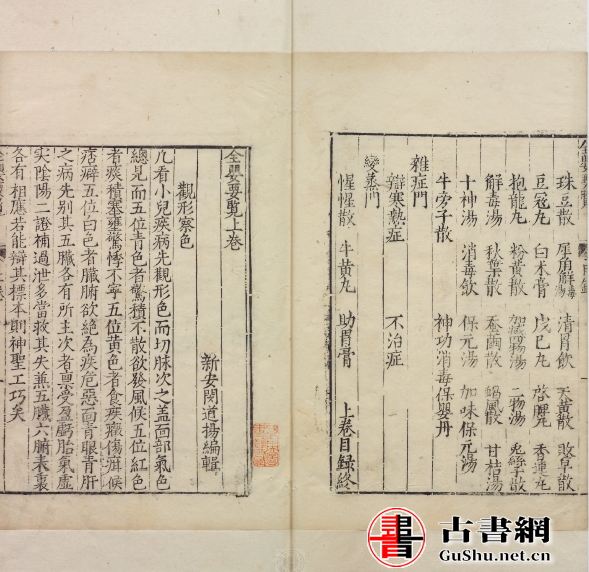 珠豆散 犀角解毒湯 清胃飲 天黃散 敗草散
豆寇丸 白朮膏 戊巳丸 啓脾丸 香連丸
抱龍丸 粉黃散 加減瀉湯 二物湯 兎絲子散
解毒湯 秋葉散 蚕繭散 風散 甘桔湯
十神湯 消毒飲 保元湯 加味保元湯
牛旁子散 神功消毒保嬰丹
雜症門
辯寒熱症 不治症
變蒸門
惺惺散 牛黃丸 助胃膏 上卷目録終
全嬰要覽上卷
新安閔道揚編輯
觀形察色
凢看小兒疾病先觀形色而切脉次之盖面部氣色
緫見而五位青色者驚積不散欲發風候五位紅色
者痰積塞壅驚悸不寧五位黃色者食疾癥傷癖候
痞癖五位白色者臟腑欲絶為疾危惡面青眼青肝
之病先别其五臟各有所主次者禀受盈虧胎氣虛
実陰陽二證補過泄多當救其失兼五臟六腑表裏
各有相應若能辯其標本則神聖工巧矣
書
古書網
GuShu.net.cn